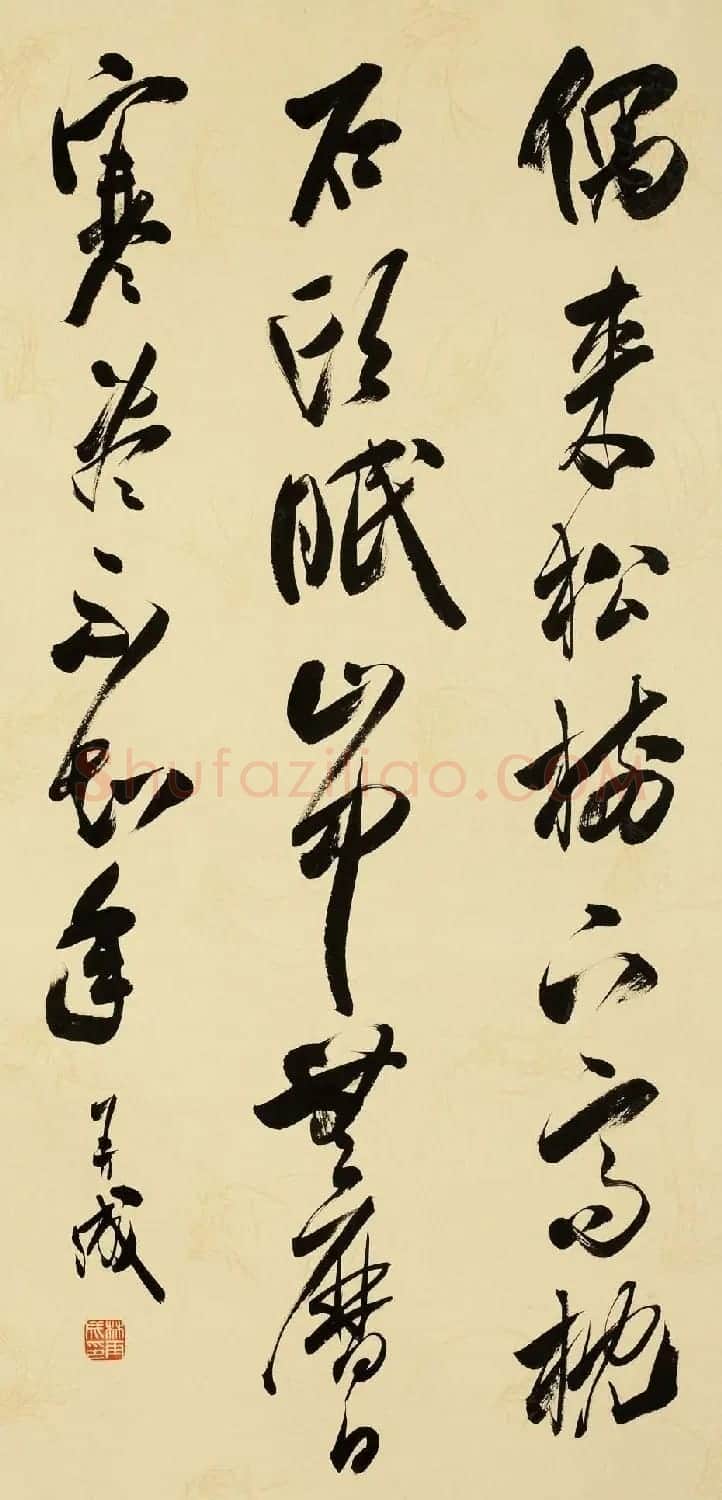 偶来松樹下高枕
石頭眠山中無曆日
寒盡不知年
成
Shufaziliao.COM